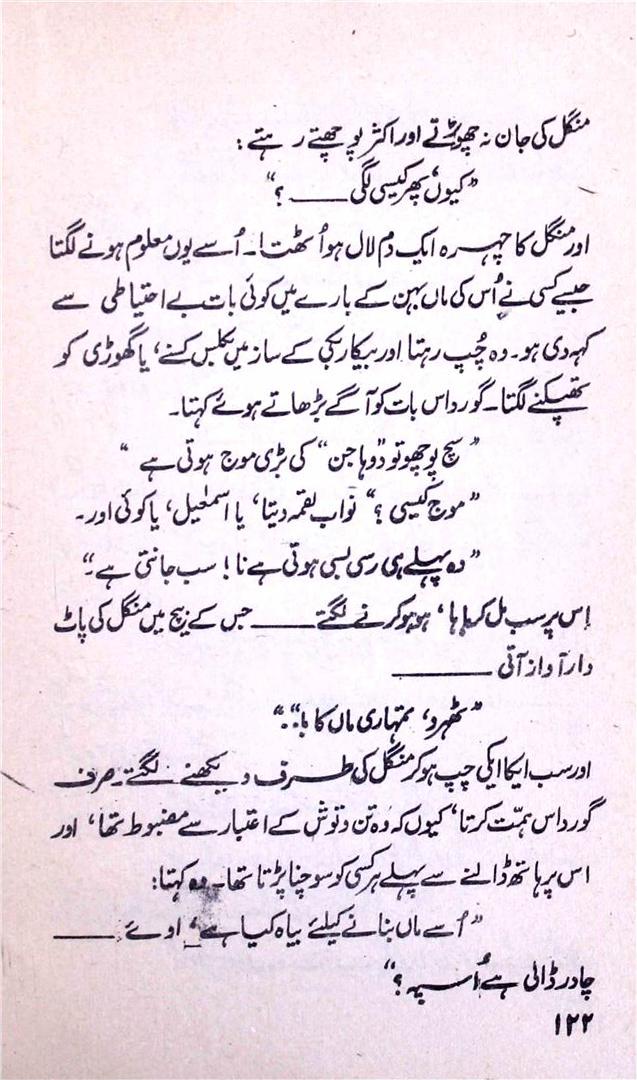 منگل کی جان نہ چھوڑتے اور اکثر پوچھتے رہتے:
”کیوں‘ پھر کیسی لگی ——— ؟“
اور منگل کا چہرہ ایک دم لال ہو اُٹھتا۔ اُسے یوں معلوم ہونے لگتا
جیسے کسی نے اُس کی ماں بہن کے بارے میں کوئی بات بے احتیاطی سے
کہہ دی ہو۔ وہ چُپ رہتا اور بیکار بگی کے ساز میں بکلس کسنے‘ یا گھوڑی کو
تھپکنے لگتا۔ گورداس بات کو آگے بڑھاتے ہوئے کہتا۔
”سچ پوچھو تو ”دوہاجن“ کی بڑی موج ہوتی ہے“
”موج کیسی؟“ نواب لقمہ دیتا‘ یا اسمٰعیل‘ یا کوئی اور۔
”وہ پہلے ہی رسی بسی ہوتی ہے نا! سب جانتی ہے۔“
اِس پر سب مل کر ہاہا‘ ہو ہو کرنے لگتے ——— جس کے بیچ میں منگل کی پاٹ
دار آواز آتی ———
”ٹھہرو‘ تمہاری ماں کا با‘‘..“
اور سب ایکا ایکی چپ ہو کر منگل کی طرف دیکھنے لگتے۔ صرف
گورداس ہمّت کرتا‘ کیوں کہ وہ تن و توش کے اعتبار سے مضبوط تھا‘ اور
اس پر ہاتھ ڈالنے سے پہلے ہر کسی کو سوچنا پڑتا تھا۔ وہ کہتا:
”اُسے ماں بنانے کیلئے بیاہ کیا ہے‘ اوئے ———
چادر ڈالی ہے اُس پہ؟“
۱۲۲